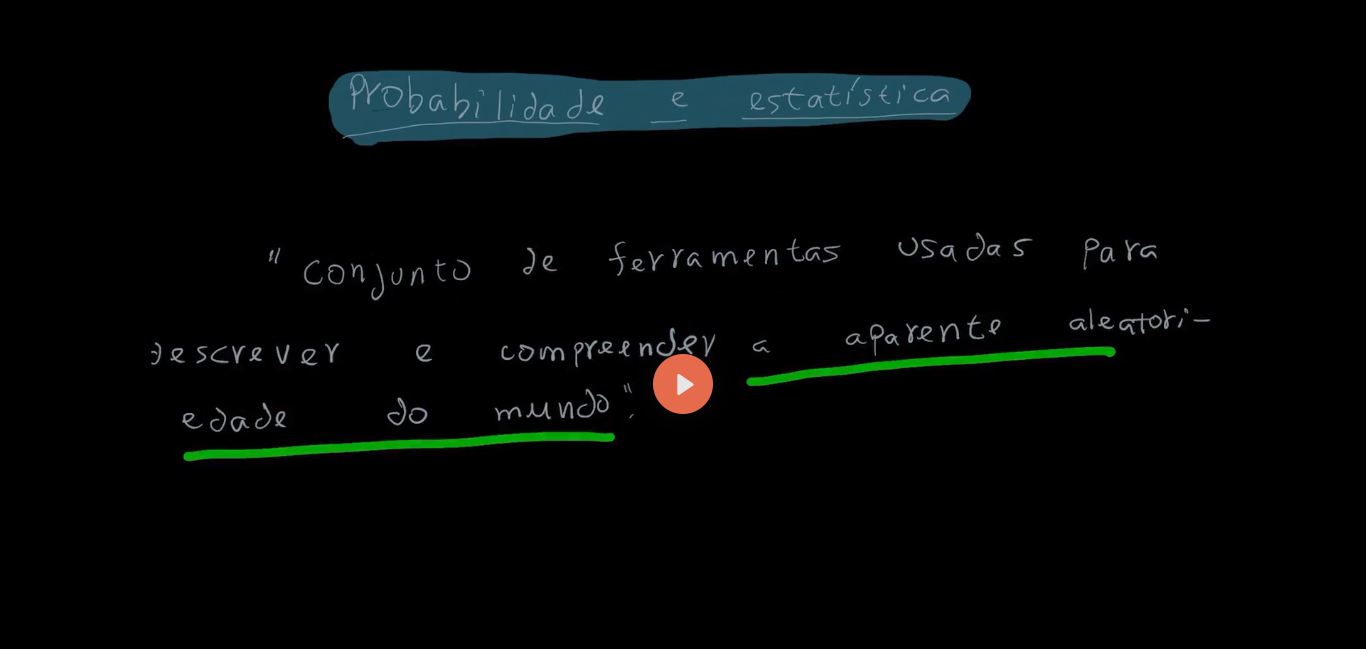 Probabilidade e estatística
"Conjunto de ferramentas usadas para
Descrever e compreender a aparente aleatori-
edade do mundo".